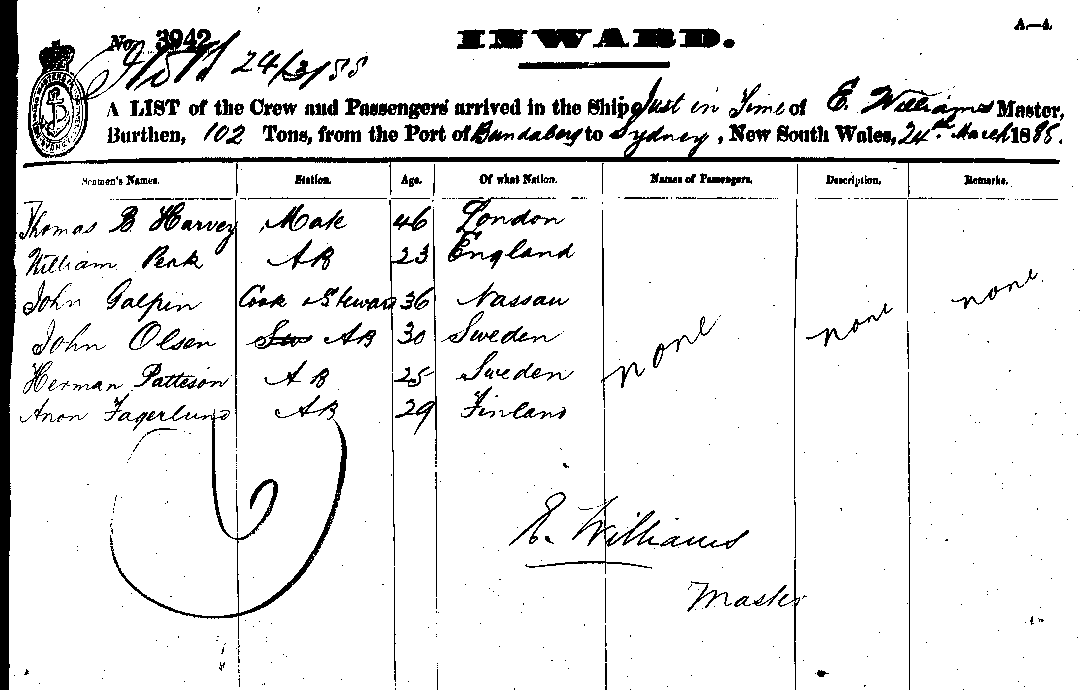 A—4.
No. 3942
INWARD.
24/3/88
A LIST of the Crew and Passengers arrived in the Ship Just in Time of E. Williams Master,
Burthen, 102 Tons, from the Port of Bundaberg to Sydney, New South Wales, 24th March 1888.
Seamen's Names. Station. Age. Of what Nation. Names of Passengers. Description. Remarks.
Thomas B Harvey Mate 46 London
William Peak AB 23 England
John Galpin Cook & Steward 36 Nassau none
John Olsen AB 30 Sweden none none
Herman Patteson AB 25 Sweden
Anon Fagerlund AB 29 Finland
E. Williams
Master